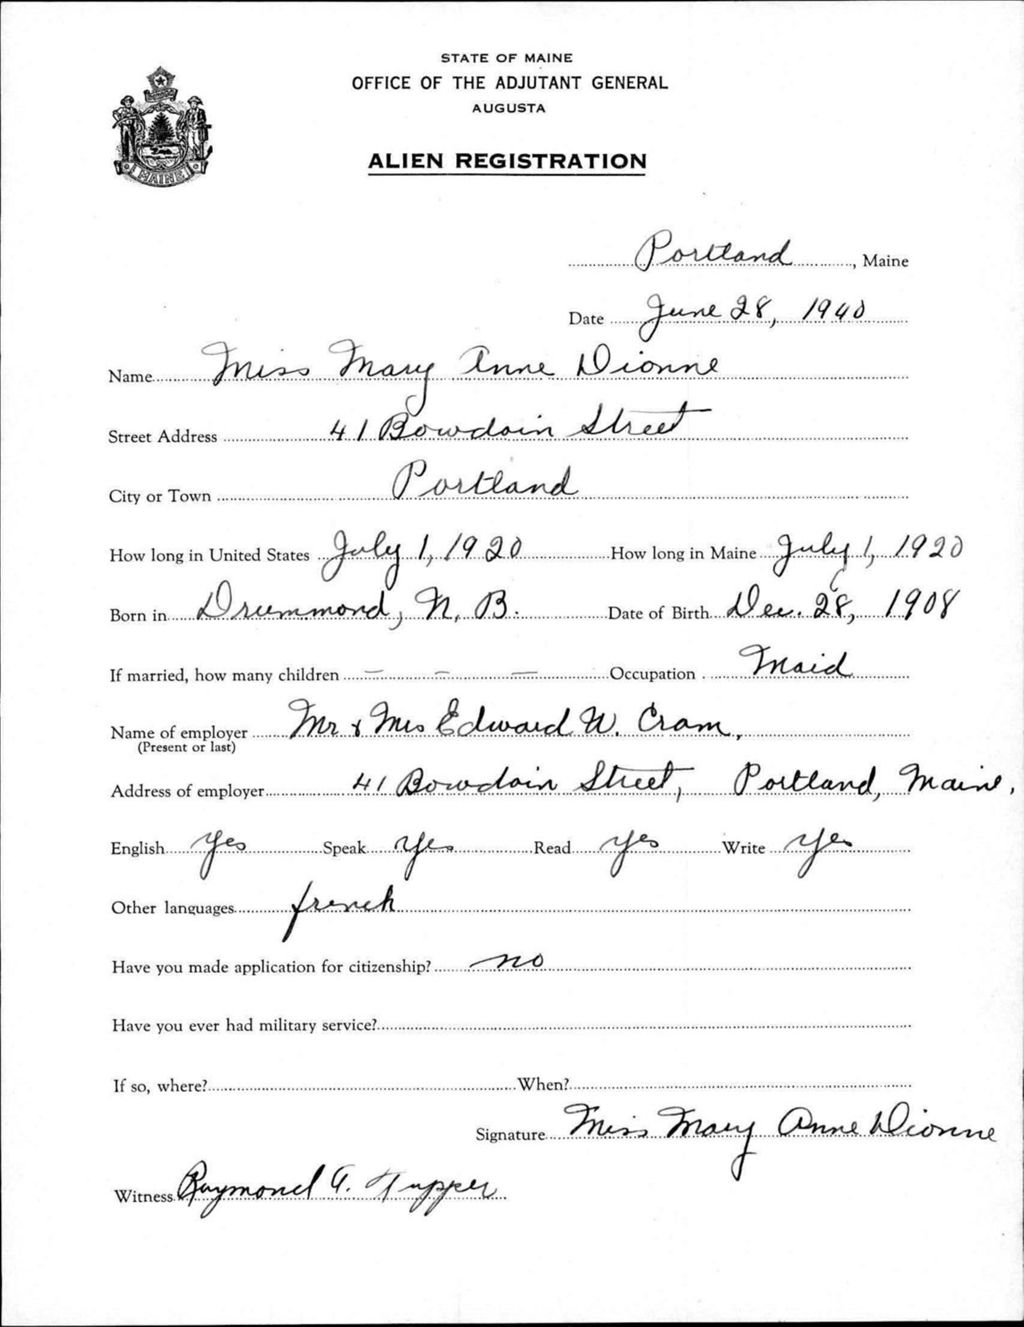 STATE OF MAINE
OFFICE OF THE ADJUTANT GENERAL
AUGUSTA
ALIEN REGISTRATION
MAINE
Portland, Maine
Date June 28, 1940
Name Miss Mary Anne Dionne
Street Address 41 Bowdoin Street
City or Town Portland
How long in United States July 1, 1920 How long in Maine July 1, 1920
Born in Drummond, N. B. Date of Birth Dec. 28, 1908
If married, how many children – – – Occupation Maid
Name of employer Mr & Mrs Edward W. Cram,
(Present or last)
Address of employer 41 Bowdoin Street, Portland, Maine.
English Yes Speak Yes Read Yes Write Yes
Other languages french
Have you made application for citizenship? no
Have you ever had military service?
If so, where? When?
Signature Miss Mary Anne Dionne
Witness Raymond G. Tupper